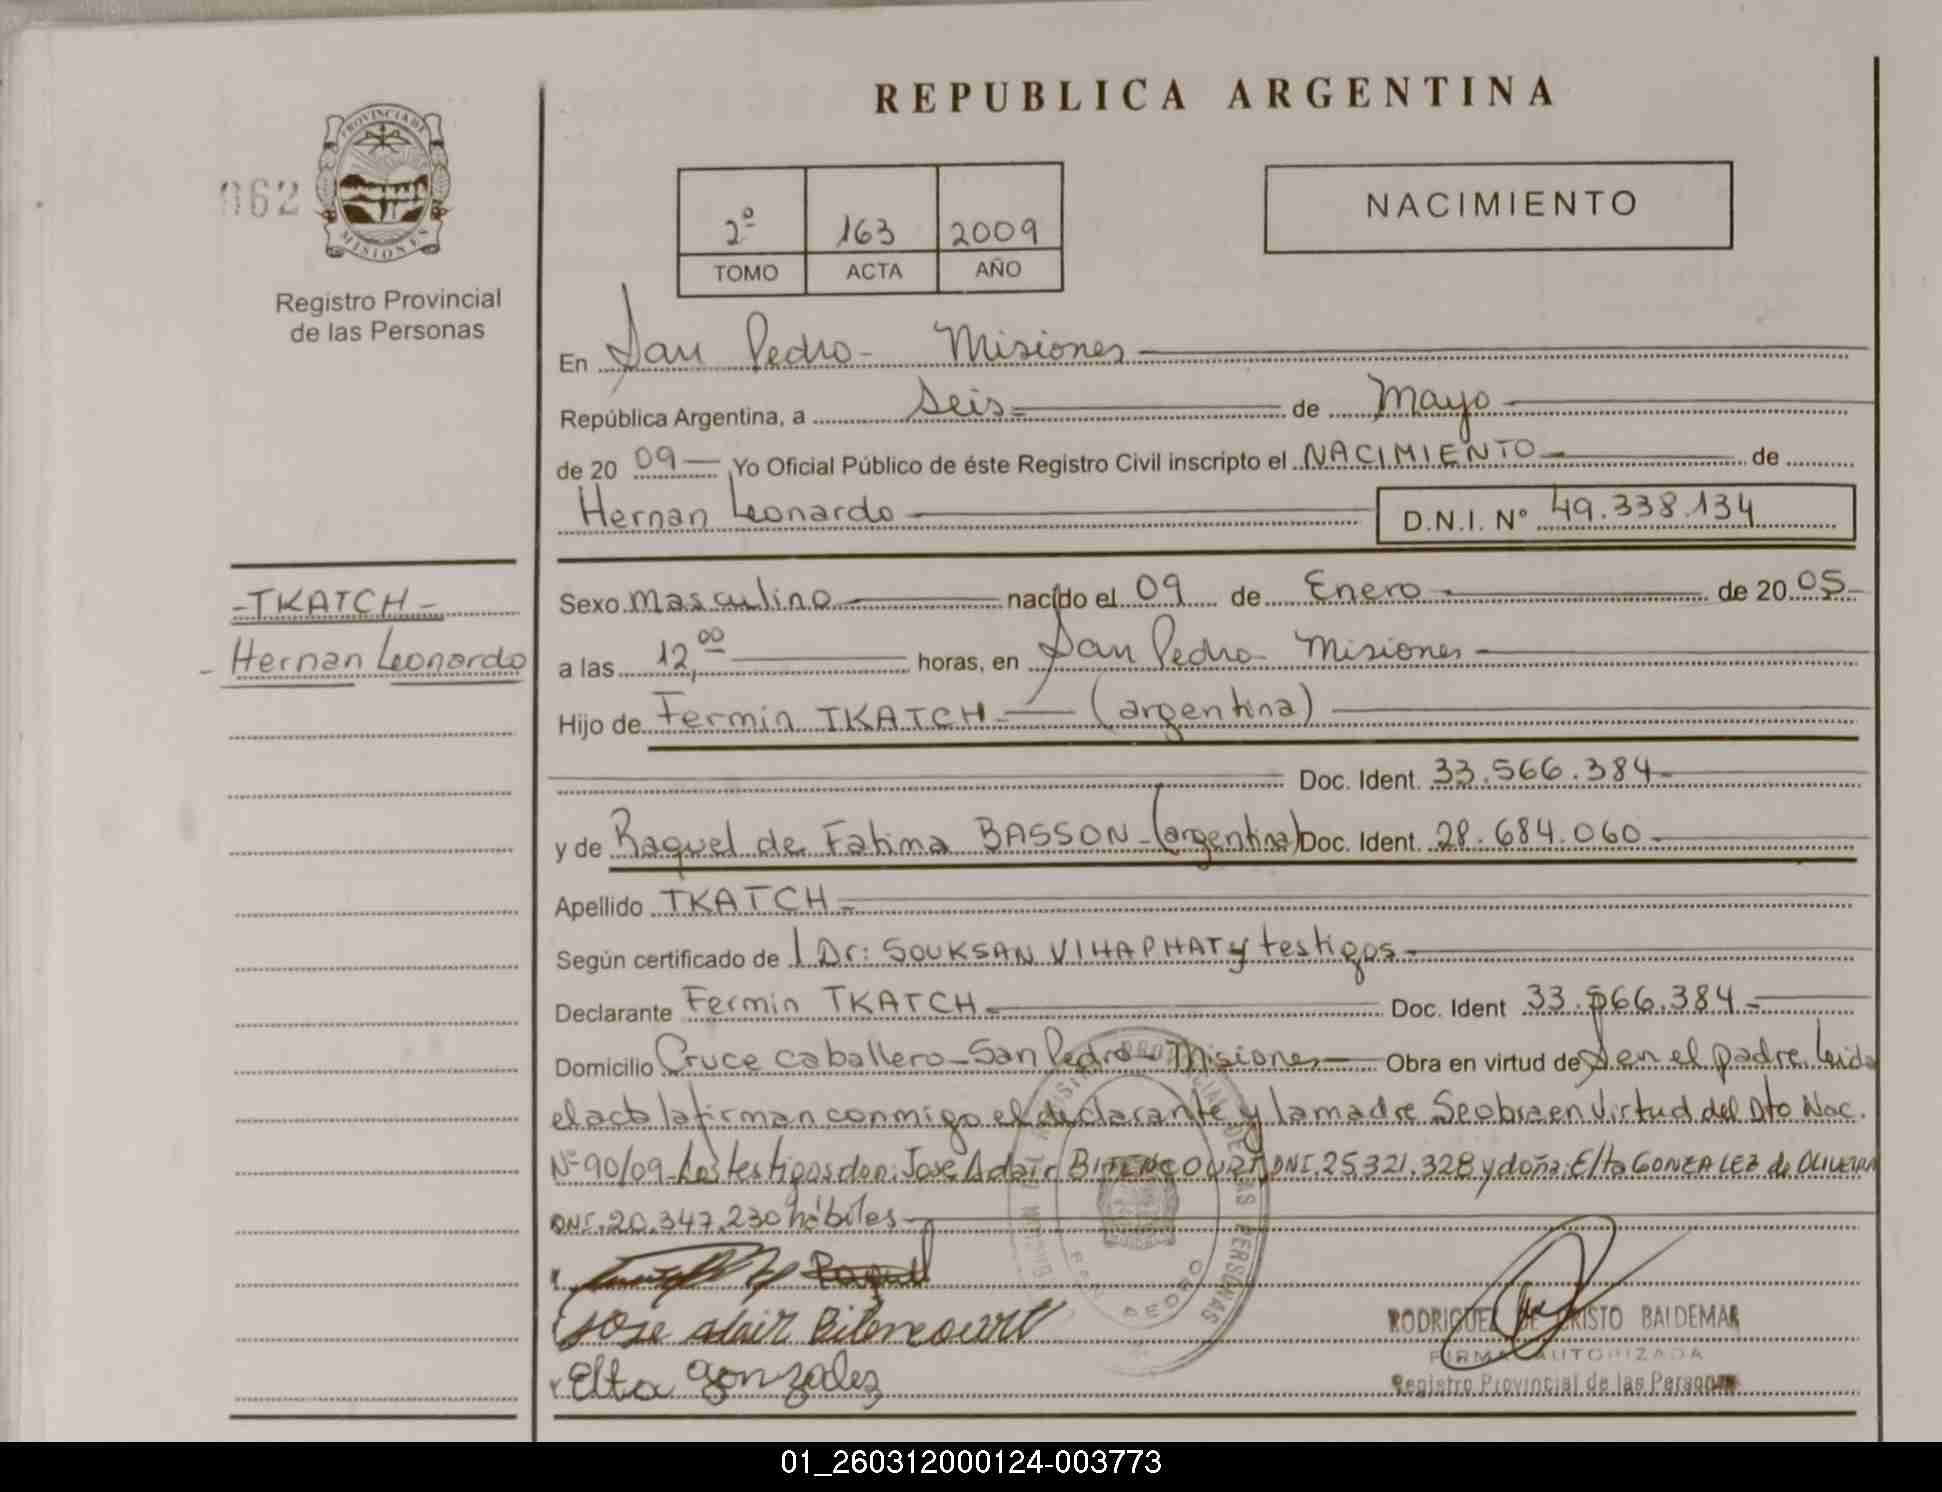 REPUBLICA ARGENTINA
062
PROVINCIA DE
MISIONES
Registro Provincial
de las Personas
2º 163 2009
TOMO ACTA AÑO
NACIMIENTO
En San Pedro - Misiones
República Argentina, a Seis de Mayo
de 20 09 Yo Oficial Público de éste Registro Civil inscripto el NACIMIENTO de
Hernan Leonardo D.N.I. Nº 49.338.134
- TKATCH -
- Hernan Leonardo
Sexo masculino nacido el 09 de Enero de 20 05
a las 12,00 horas, en San Pedro - Misiones
Hijo de Fermin TKATCH (argentina)
Doc. Ident. 33.566.384
y de Raquel de Fatima BASSON - (argentina) Doc. Ident. 28.684.060
Apellido TKATCH
Según certificado de Dr: SOUKSAN VIHAPHAT y testigos
Declarante Fermin TKATCH Doc. Ident 33.566.384
Domicilio Cruce caballero - San Pedro - Misiones Obra en virtud de Ser el padre. Leida
el acta la firman conmigo el declarante y la madre. Se obra en Virtud del Dto Nac.
Nº 90/09 - Los testigos don: Jose Adair BITENCOURT DNI. 25.321.328 y doña: Elta GONZALEZ de OLIVEIRA
DNI. 20.347.230 hábiles
Raquel
Jose adair Bitencourt
Elta gonzalez
REGISTRO PROVINCIAL DE LAS PERSONAS
SAN PEDRO
RODRIGUEZ DE CRISTO BALDEMAR
FIRMA AUTORIZADA
Registro Provincial de las Personas
01_260312000124-003773